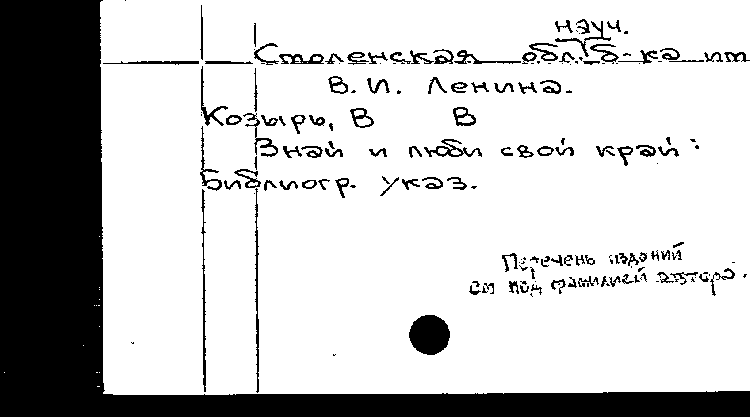 науч.
Смоленская обл. б-ка им
В. И. Ленина.
Козырь, В В
Знай и люби свой край:
Библиогр. указ.
Перечень изданий
см под фамилией автора.